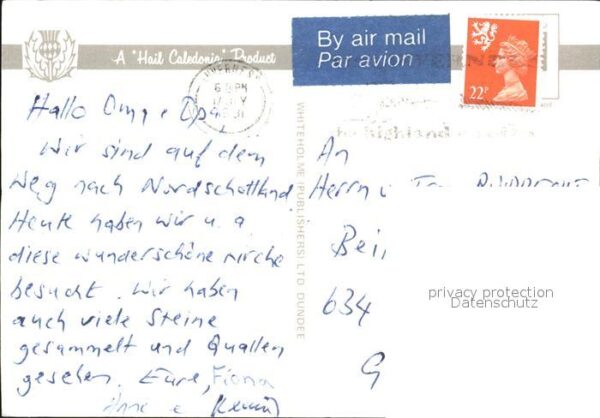 A "Hail Caledonia" Product
By air mail
Par avion
22P
INVERNESS
6 PM
Hallo Oma + Opa,
Wir sind auf dem
Weg nach Nordschottland.
Heute haben wir u. a.
diese wunderschöne Kirche
besucht. Wir haben
auch viele Steine
gesammelt und Quallen
gesehen. Eure, Fiona
Anne
WHITEHOLME (PUBLISHERS) LTD DUNDEE
An
Herrn u
634
privacy protection
Datenschutz